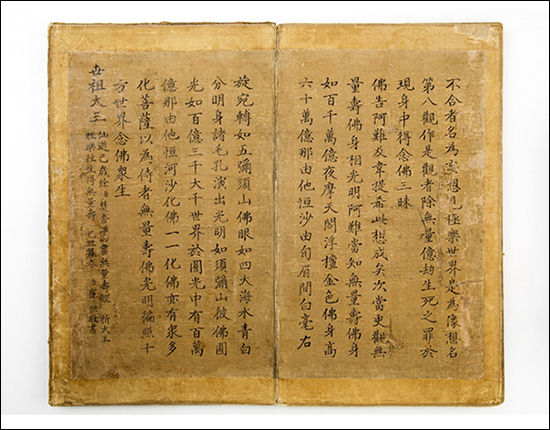 不合者名為妄想見極樂世界是為像想名
第八觀作是觀者除無量億劫生死之罪於
現身中得念佛三昧
佛告阿難及韋提希此想成矣次當更觀無
量壽佛身相光明阿難當知無量壽佛身
如百千萬億夜摩天閻浮檀金色佛身高
六十萬億那由他恒沙由旬眉間白毫右
旋宛轉如五彌須山佛眼如四大海水青白
分明身諸毛孔演出光明如須彌山彼佛圓
光如百億三千大千世界於圓光中有百萬
億那由他恒河沙化佛一一化佛亦有衆多
化菩薩以為侍者無量壽佛光明徧照十
方世界念佛衆生
世祖大王
仙遊已歲餘 無量壽經 大王
極樂往生得無量壽